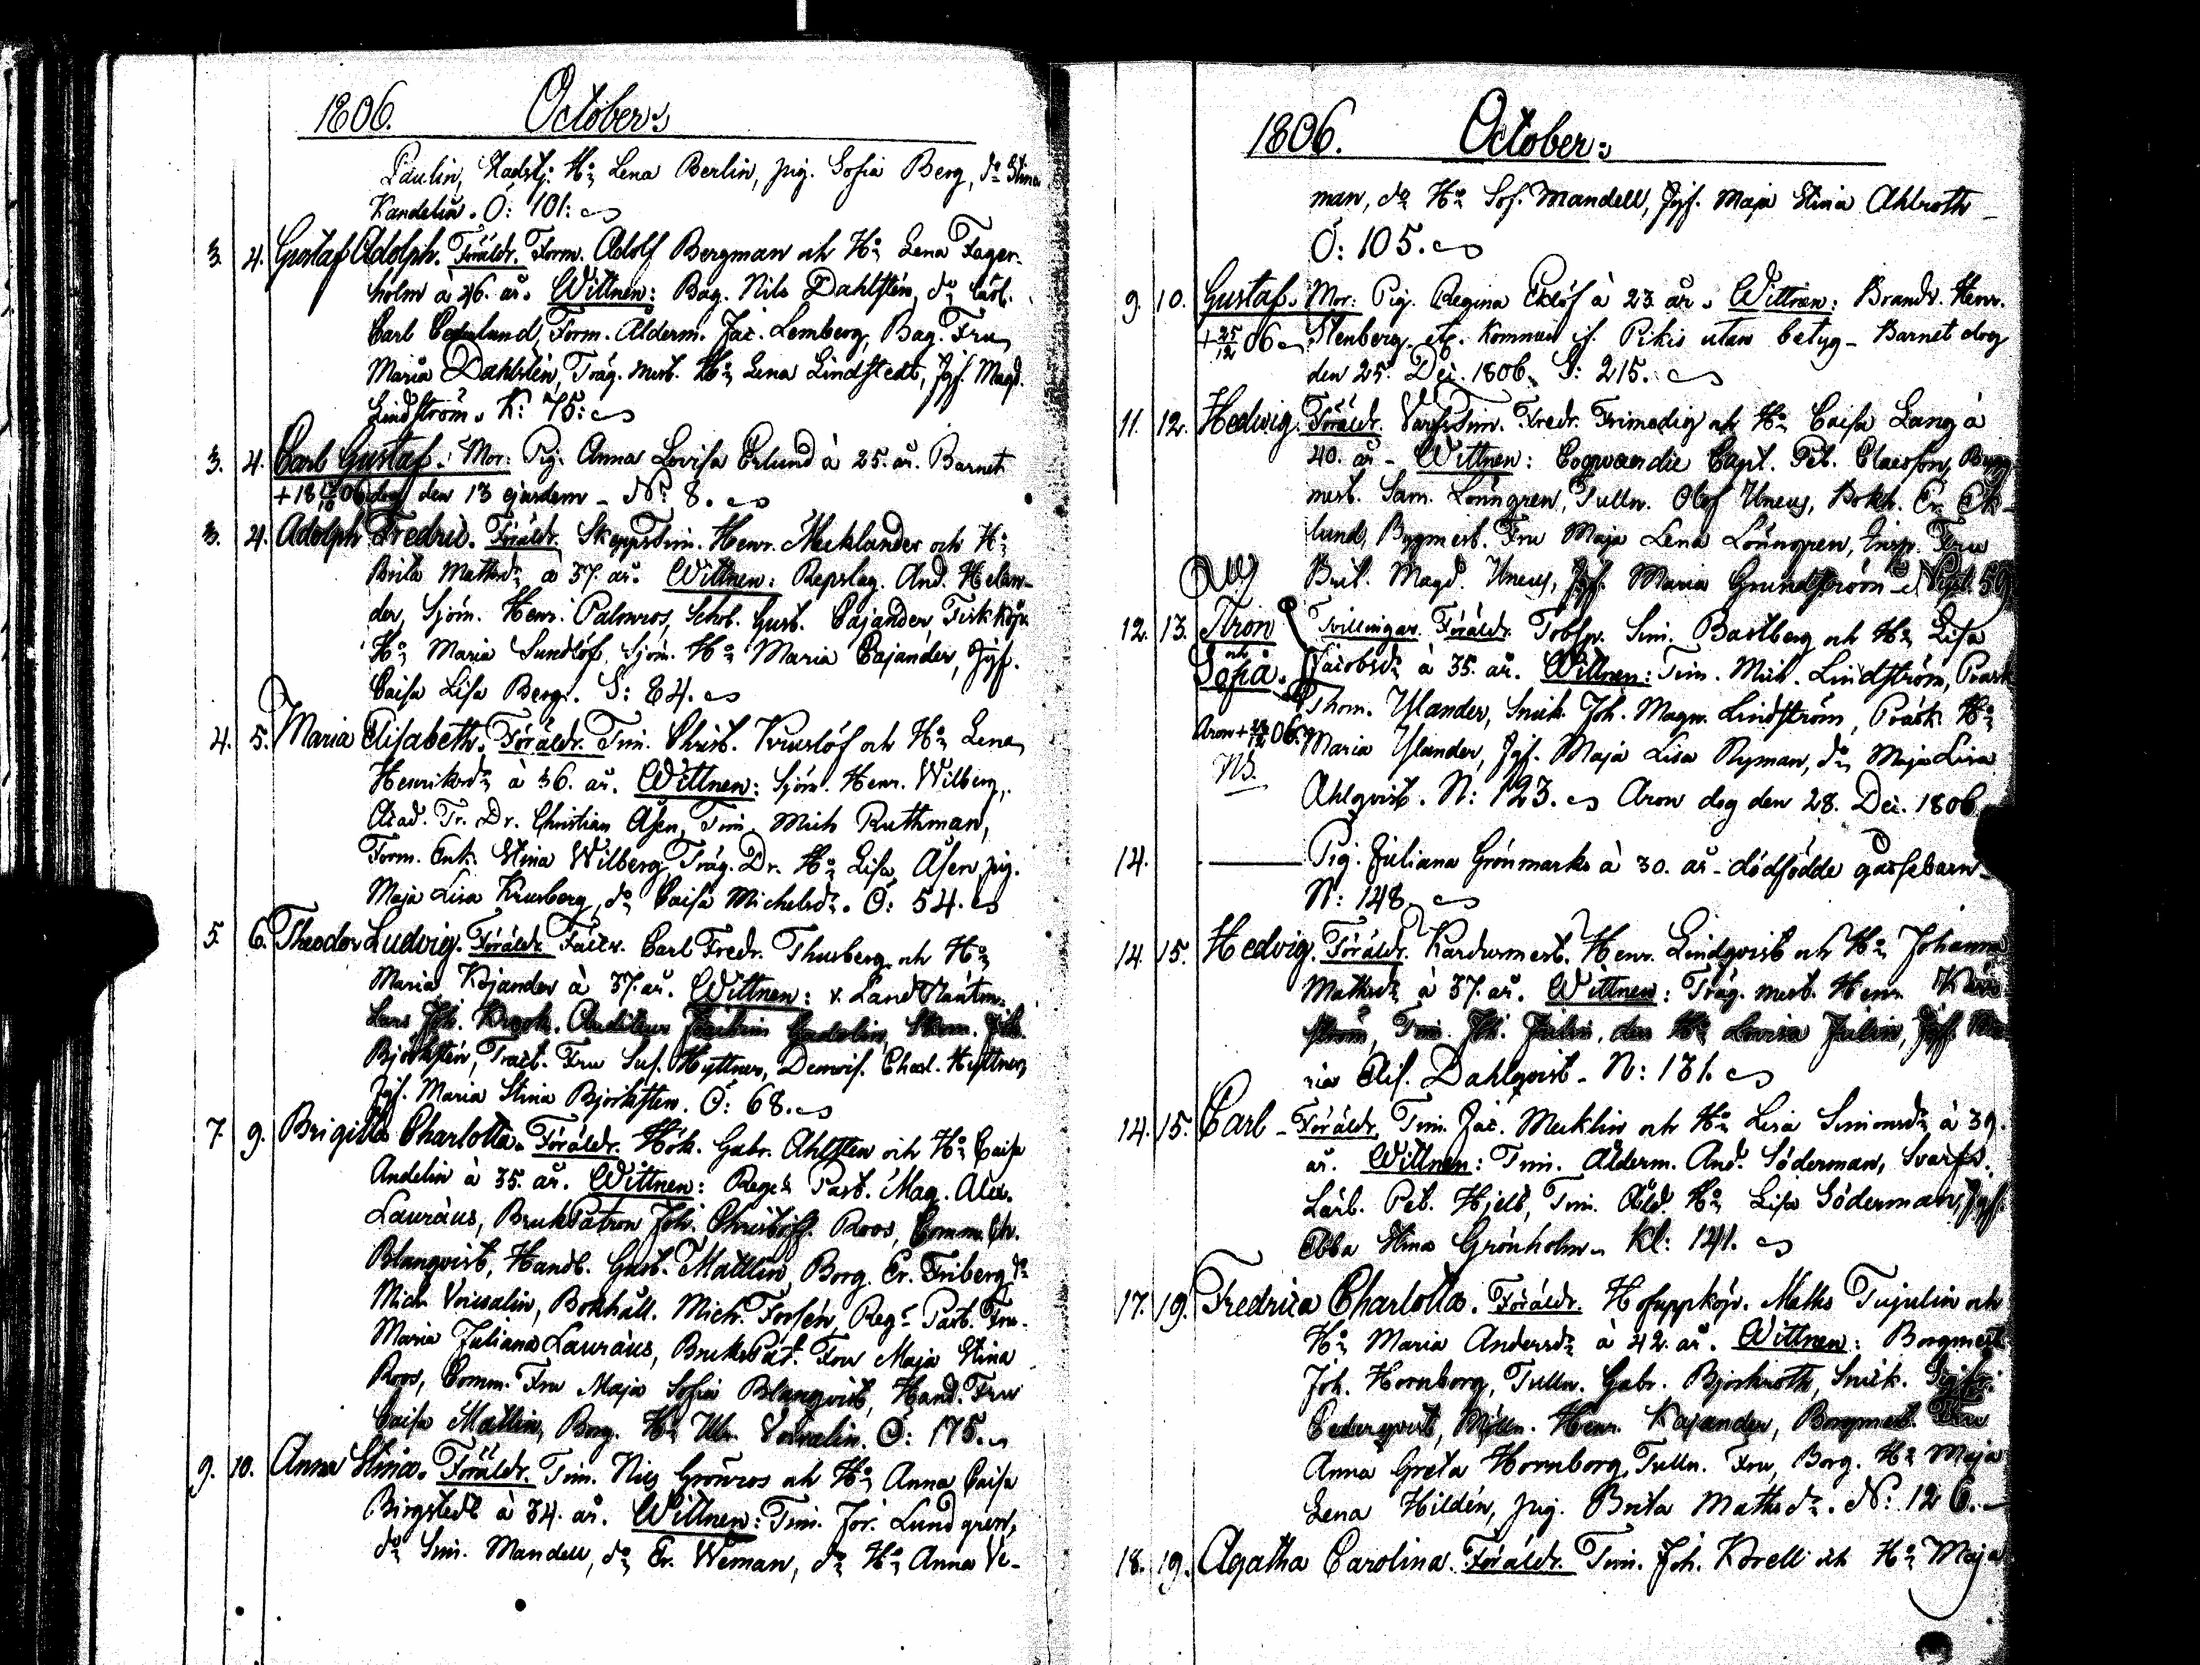 1806. October:
Paulin, Stadstj. H:o Lena Berlin, pig. Sofia Berg, d:o Stina
Kandelin. Ö: 101:
3. 4. Gustaf Adolph. Föräldr. Form. Adolf Bergman och H:o Lena Fager-
holm à 26. år. Wittnen: Bag. Nils Dahlstén, d:o Lärl.
Carl Cederlund, Form. Ålderm. Jac. Lemberg, Bag. Fru
Maria Dahlstén, Träg. mest. H:o Lena Lindstedt, Jgf. Magd.
Lindström. K: 75:
3. 4. Carl Gustaf. Mor: Pig. Anna Lovisa Erlund à 25. år. Barnet
dog den 13 ejusdem - N: 8.
3. 4. Adolph Fredric. Föräldr. Skeppstim. Henr. Mecklander och H:o
Brita Mattsd:r à 37. år. Wittnen: Repslag. And. Helan-
der, Sjöm. Henr. Palmros, Schol. Gust. Cajander, Fiskköp.
H:o Maria Sundlöf, Sjöm. H:o Maria Cajander, Jgf.
Caisa Lisa Berg. S: 84.
4. 5. Maria Elisabeth. Föräldr. Tim. Christ. Kruslöf och H:o Lena
Henriksd:r à 36. år. Wittnen: Sjöm. Henr. Wilberg,
Acad. Tr. Dr. Christian Åsen, Tim. Mich Ruthman,
Form. Enk. Stina Wilberg, Träg. Dr. H:o Lisa Åsen, pig.
Maja Lisa Krusberg, d:o Caisa Michelsd:r. Ö: 54.
5. 6. Theodor Ludvig. Föräldr. Fältv. Carl Fredr. Thusberg och H:o
Maria Kajander à 37. år. Wittnen: v. Landträntm.
Lars Joh. Krook, Auditeur Joachim Gadolin,
Björkstén, Tract. Fru Sus. Hyttner, Demois. Charl. Hyttner,
Jgf. Maria Stina Björkstén. Ö: 68.
7. 9. Brigitta Charlotta. Föräldr. Hök. Gabr. Ahlsten och H:o Caisa
Andelin à 35. år. Wittnen: Reg:s Past. Mag. Alex.
Lauræus, Brukspatron Joh. Christoff. Roos, Comm. Er.
Blanqvist, Handl. Gust. Mattlin, Borg. Er. Friberg, d:o
Mich. Voivalin, Bokhåll. Mich. Forsén, Reg:s Past. Fru
Maria Juliana Lauræus, Brukspat. Fru Maja Stina
Roos, Comm. Fru Maja Sofia Blanqvist, Hand. Fru
Caisa Matlin, Borg. H:o Ulr. Voivalin. Ö: 175.
9. 10. Anna Stina. Föräldr. Tim. Nils Grönros och H:o Anna Caisa
Birgstedt à 34. år. Wittnen: Tim. Jör. Lundgren,
d:o Sim. Mandell, d:o Er. Weman, d:o H:o Anna We-
1806. October:
man, d:o H:o Sof. Mandell, Jgf. Maja Stina Ahlroth
Ö: 105.
9. 10. Gustaf. Mor: Pig. Regina Eklöf à 23 år. Wittnen: Brandv. Henr.
+ 25/12 06 Stenberg etc. Kommen if. Pikis utan betyg - Barnet dog
den 25 Dec. 1806. S: 215.
11. 12. Hedwig. Föräldr. Varfstim. Fredr. Frimodig och H:o Caisa Lang à
40. år - Wittnen: Cogvaerdie Capt. Pet. Claesson, Bygg-
mest. Sam. Lönngren, Tulln. Olof Uneus, Bokh. Er. Ek-
lund, Bygmest. Fru Maja Lena Lönngren, Insp. Fru
Brit. Magd. Uneus, Jgf. Maria Grundström
12. 13. Aron Tvillingar. Föräldr. Tobsp. Sim. Bastberg och H:o Lisa
och Sofia. Jacobsd:r à 35. år. Wittnen: Tim. Mich. Lindström, Prask
Thom. Ylander, Snick. Joh. Magn. Lindström, Prask. H:o
Aron + 28/12 06. Maria Ylander, Jgf. Maja Lisa Nyman, d:o Maja Lisa
NB. Ahlqvist. N: 123. Aron dog den 28. Dec. 1806
14. Pig. Juliana Grönmarks à 30. år - dödfödde gossebarn
N: 148.
14. 15. Hedvig. Föräldr. Kardusmest. Henr. Lindqvist och H:o Johanna
Mattsd:r à 37. år. Wittnen: Träg. mest. Henr.
ström, Tim. Joh. Julin, dess H:o Lovisa Julin, Jgf. Ma-
ria Elis. Dahlqvist - N: 131.
14. 15. Carl - Föräldr. Tim. Jac. Mecklin och H:o Lisa Simonsd:r à 39.
år. Wittnen: Tim. Ålderm. And. Söderman, Svarfv.
Lärl. Pet. Hjelt, Tim. Åld. H:o Lisa Söderman, Jgf.
Ebba Stina Grönholm. Kl: 141.
17. 19. Fredrica Charlotta. Föräldr. Hofuppköp. Matts Tujulin och
H:o Maria Andersd:r à 42. år. Wittnen: Borgmest.
Joh. Hornborg, Tulln. Gabr. Björkroth, Snick.
Cederqvist, Mölln. Henr. Kajander, Borgmest. Fru
Anna Greta Hornborg, Tulln. Fru, Borg. H:o Maja
Lena Hildén, pig. Brita Mattsd:r. N: 126.
18. 19. Agatha Carolina. Föräldr. Tim. Joh. Korell och H:o Maja